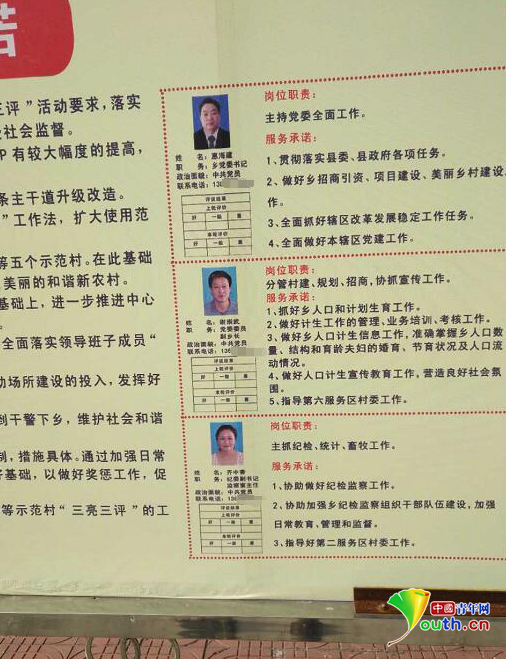 诺
三评”活动要求，落实
社会监督。
P 有较大幅度的提高，
条主干道升级改造。
”工作法，扩大使用范
等五个示范村。在此基础
美丽的和谐新农村。
基础上，进一步推进中心
全面落实领导班子成员“
动场所建设的投入，发挥好
到干警下乡，维护社会和谐
制，措施具体。通过加强日常
好基础，以做好奖惩工作，促
等示范村“三亮三评”的工
岗位职责：
主持党委全面工作。
服务承诺：
1、贯彻落实县委、县政府各项任务。
2、做好乡招商引资、项目建设、美丽乡村建设
作。
3、全面抓好辖区改革发展稳定工作任务。
4、全面做好本辖区党建工作。
姓 名：惠海建
职 务：乡党委书记
政治面貌：中共党员
联系电话：136
评议结果
上轮评价
好 一般 差
本轮评价
好 一般 差
岗位职责：
分管村建、规划、招商，协抓宣传工作。
服务承诺：
1、抓好乡人口和计划生育工作。
2、做好计生工作的管理、业务培训、考核工作。
3、做好乡人口计生信息工作，准确掌握乡人口数
量、结构和育龄夫妇的婚育、节育状况及人口流
动情况。
4、做好人口计生宣传教育工作，营造良好社会氛
围。
5、指导第六服务区村委工作。
姓 名：谢崇武
职 务：党委委员
副乡长
政治面貌：中共党员
联系电话：136
评议结果
上轮评价
好 一般 差
本轮评价
好 一般 差
岗位职责：
主抓纪检、统计、畜牧工作。
服务承诺：
1、协助做好纪检监察工作。
2、协助加强乡纪检监察组织干部队伍建设，加强
日常教育、管理和监督。
3、指导好第二服务区村委工作。
姓 名：齐中香
职 务：纪委副书记
监察室主任
政治面貌：中共党员
联系电话：136
评议结果
上轮评价
好 一般 差
本轮评价
好 一般 差
中國青年网
Youth.cn